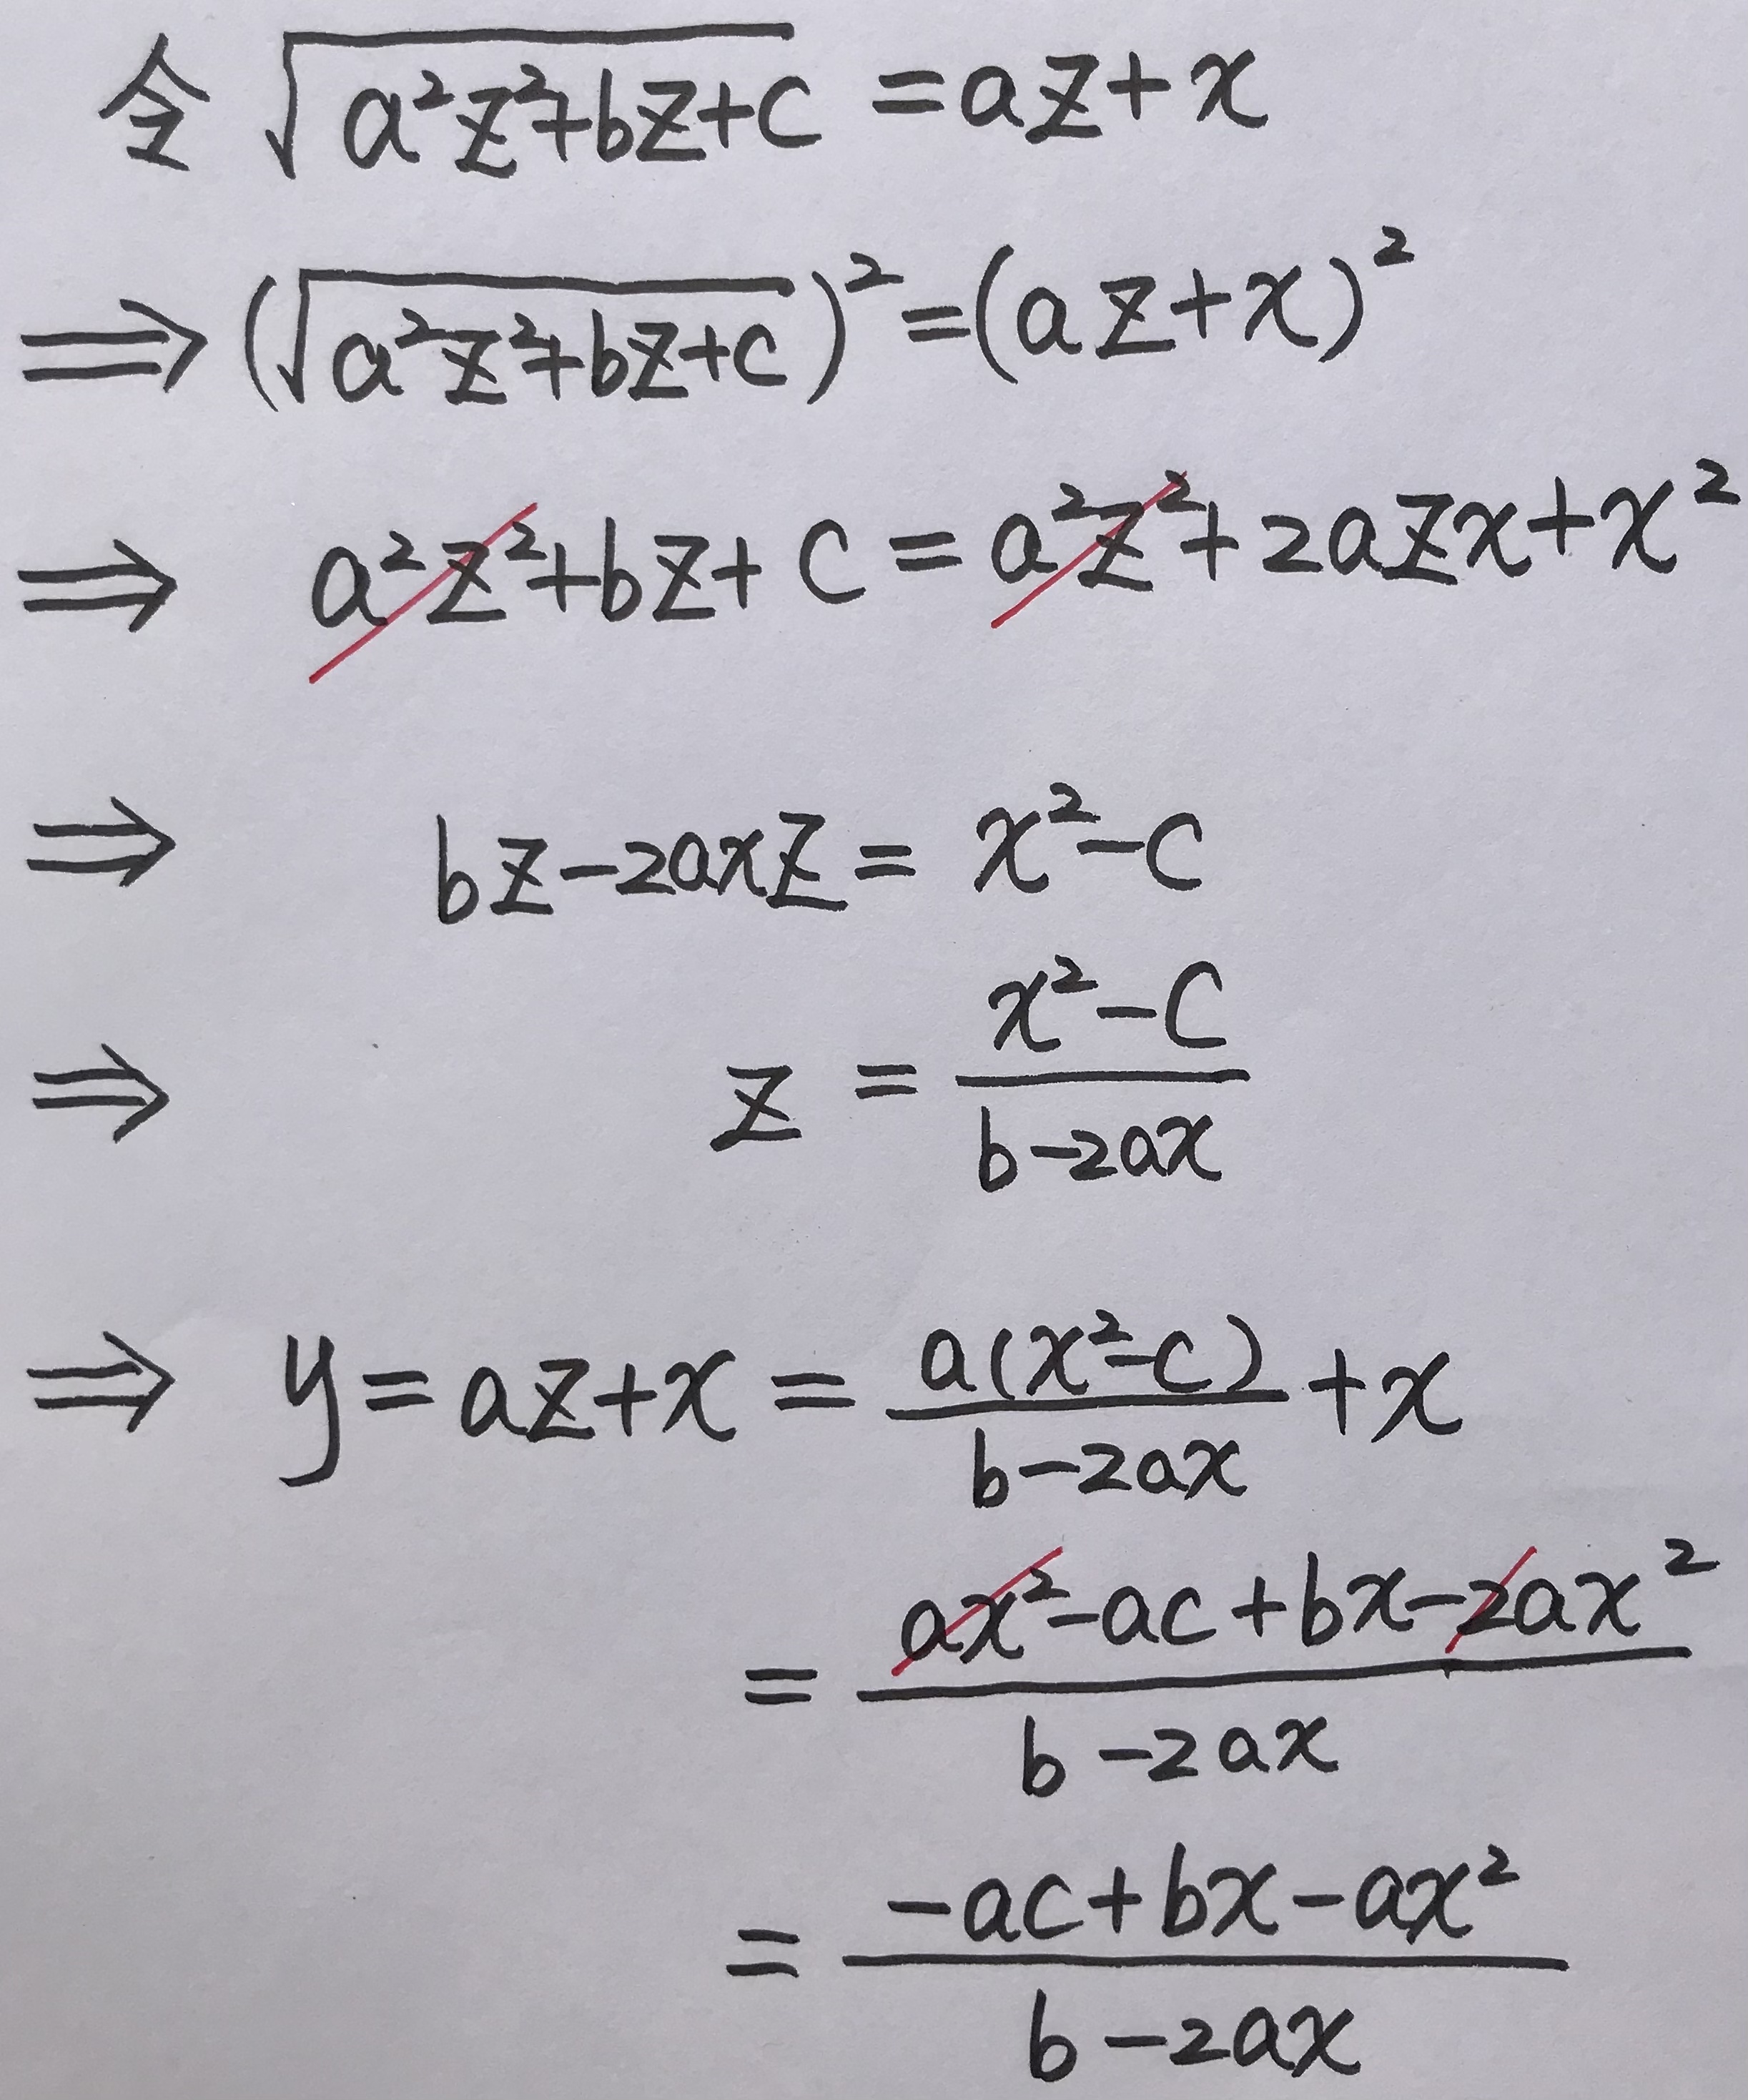 令 √(a²z²+bz+c) = az+x
⇒ (√(a²z²+bz+c))² = (az+x)²
⇒ a²z²+bz+c = a²z²+2azx+x²
⇒ bz-2axz = x²-c
⇒ z = (x²-c)/(b-2ax)
⇒ y = az+x = a(x²-c)/(b-2ax) + x
= (ax²-ac+bx-2ax²)/(b-2ax)
= (-ac+bx-ax²)/(b-2ax)